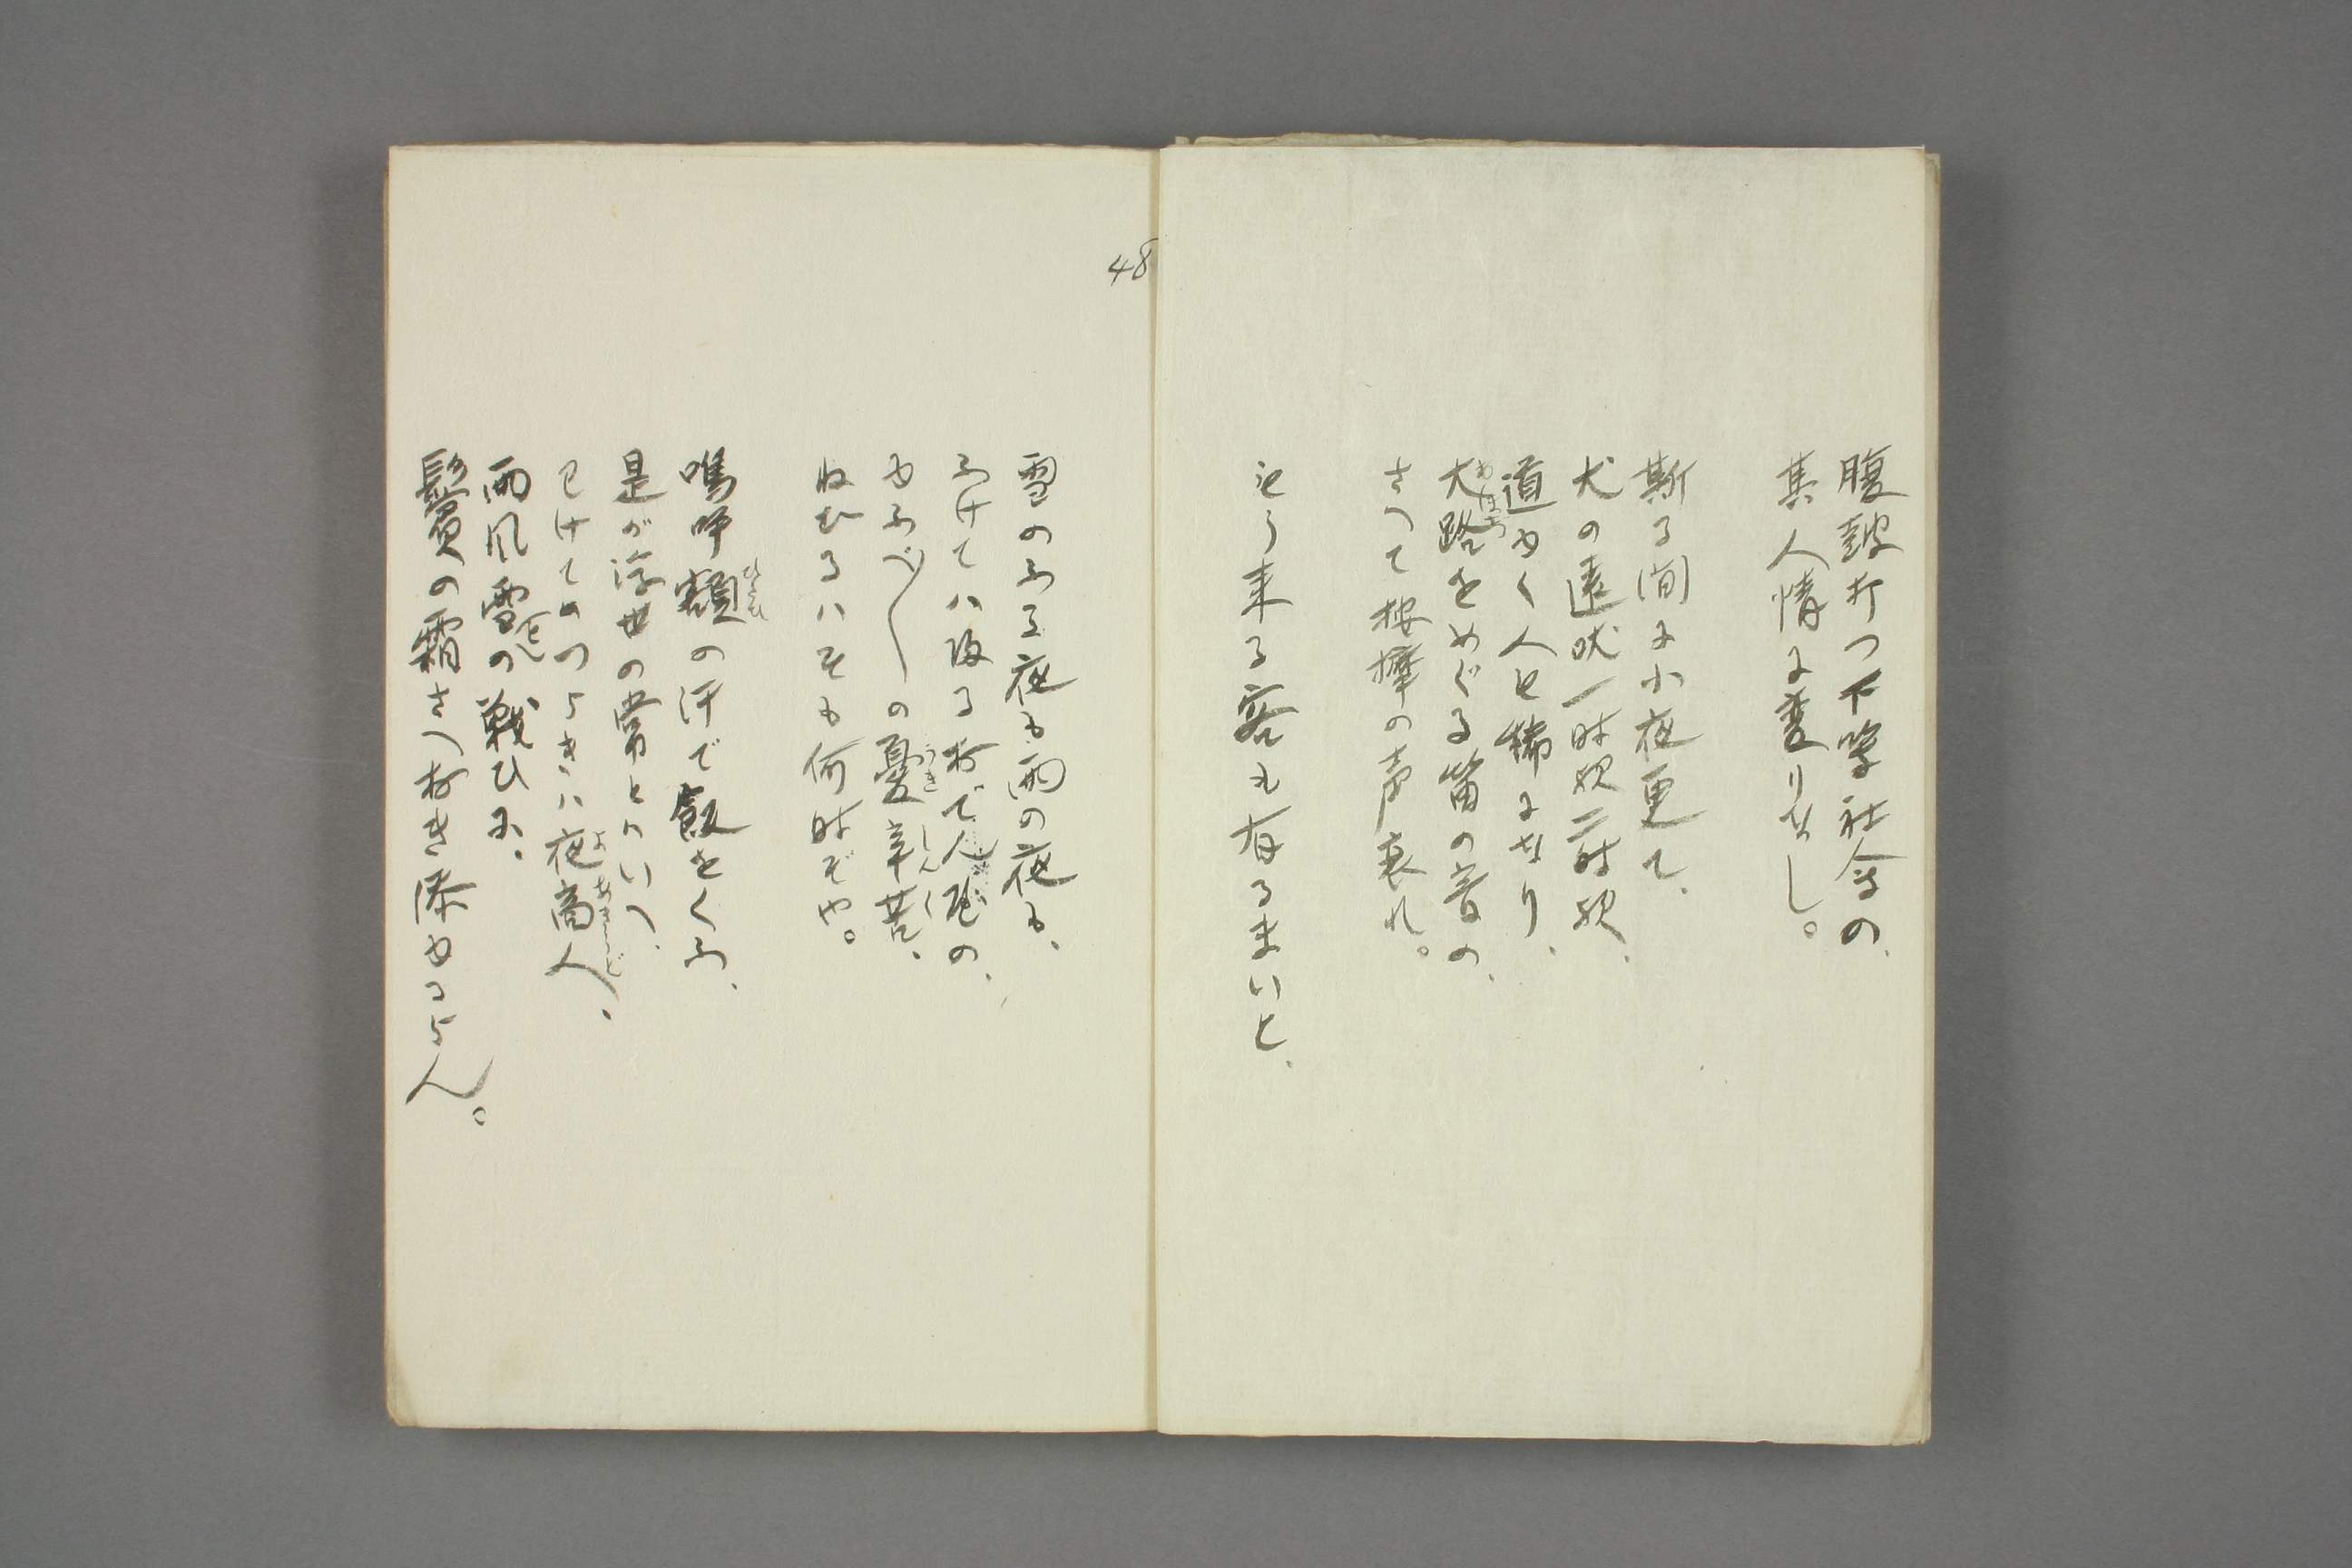 腹鼓打つ下等社会の、
其人情に変りなし。
斯る間に小夜更て、
犬の遠吠一時歟二時歟、
道ゆく人も稀になり、
大路をめぐる笛の音の、
さへて按摩の声哀れ。
もう来る客も有るまいと、
48
雪のふる夜も雨の夜も、
ふけてハ帰る
かふべの憂辛苦、
ねむるハそも何時ぞや。
嗚呼額の汗で飯をくふ、
是が浮世の常とハいへ、
わけてもつらきハ夜商人、
雨風雪の戦ひに、
鬢の霜さへおき添はるらん。